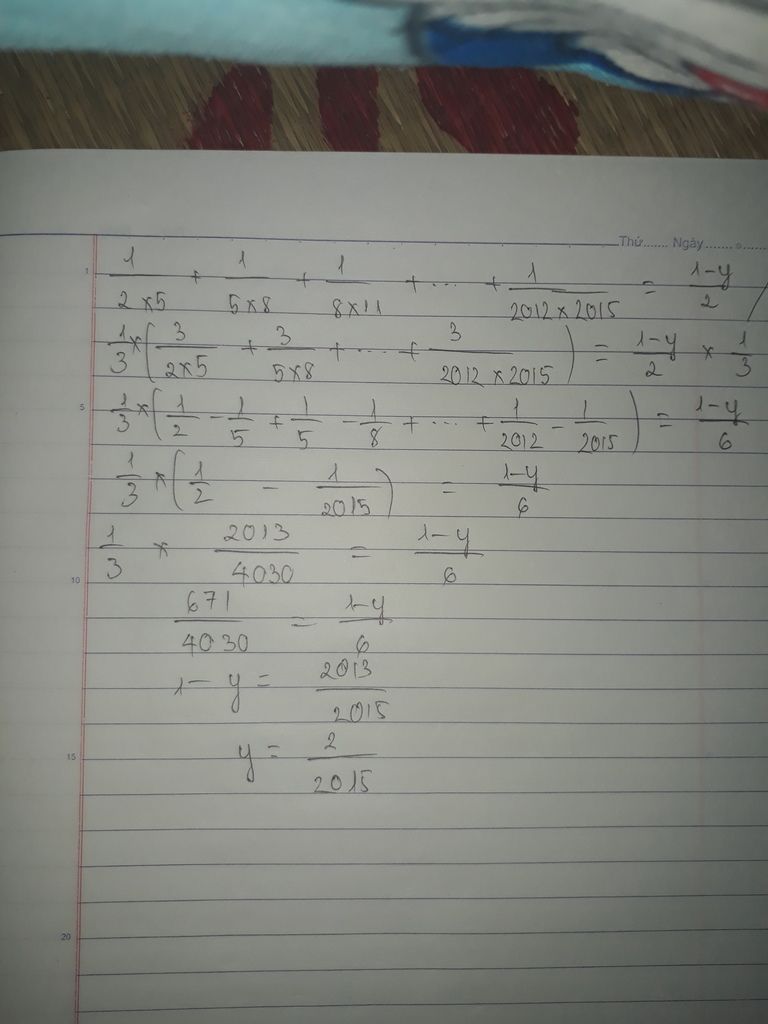 Thứ....... Ngày.......
1/(2×5) + 1/(5×8) + 1/(8×11) + ... + 1/(2012×2015) = (1-y)/2
1/3 × (3/(2×5) + 3/(5×8) + ... + 3/(2012×2015)) = (1-y)/2 × 1/3
5 1/3 × (1/2 - 1/5 + 1/5 - 1/8 + ... + 1/2012 - 1/2015) = (1-y)/6
1/3 × (1/2 - 1/2015) = (1-y)/6
1/3 × 2013/4030 = (1-y)/6
10
671/4030 = (1-y)/6
1-y = 2013/2015
15 y = 2/2015
20